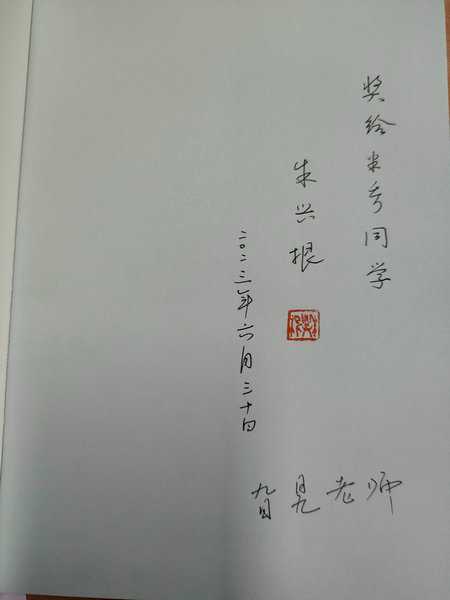 奖给米秀同学
朱兴根
二〇二三年六月三十日
旮旯老师